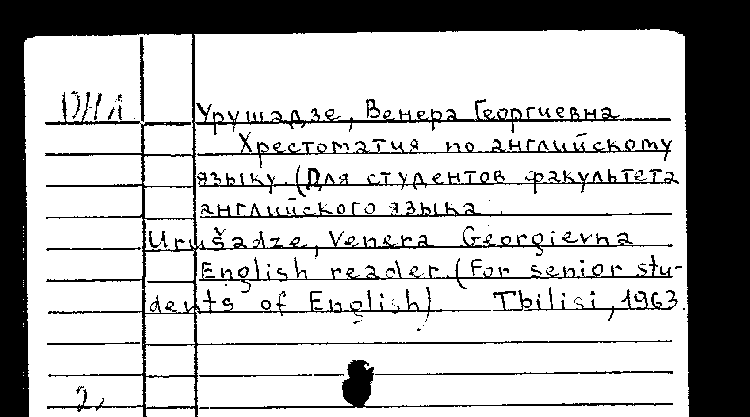 Урушадзе, Венера Георгиевна
Хрестоматия по английскому
языку. (Для студентов факультета
английского языка
Urušadze, Venera Georgievna
English reader (For senior stu-
dents of English) Tbilisi, 1963.
2,